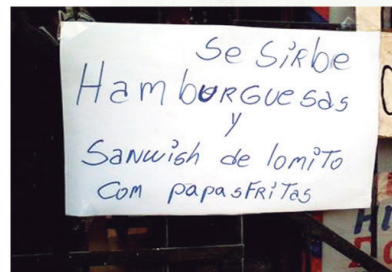 Se SiRbe
HambURGUesas
y
SANWish de lomiTo
com papasFRiTas